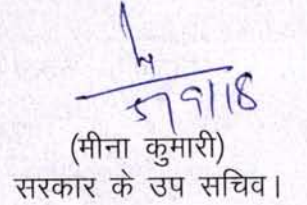 5/9/18
(मीना कुमारी)
सरकार के उप सचिव।